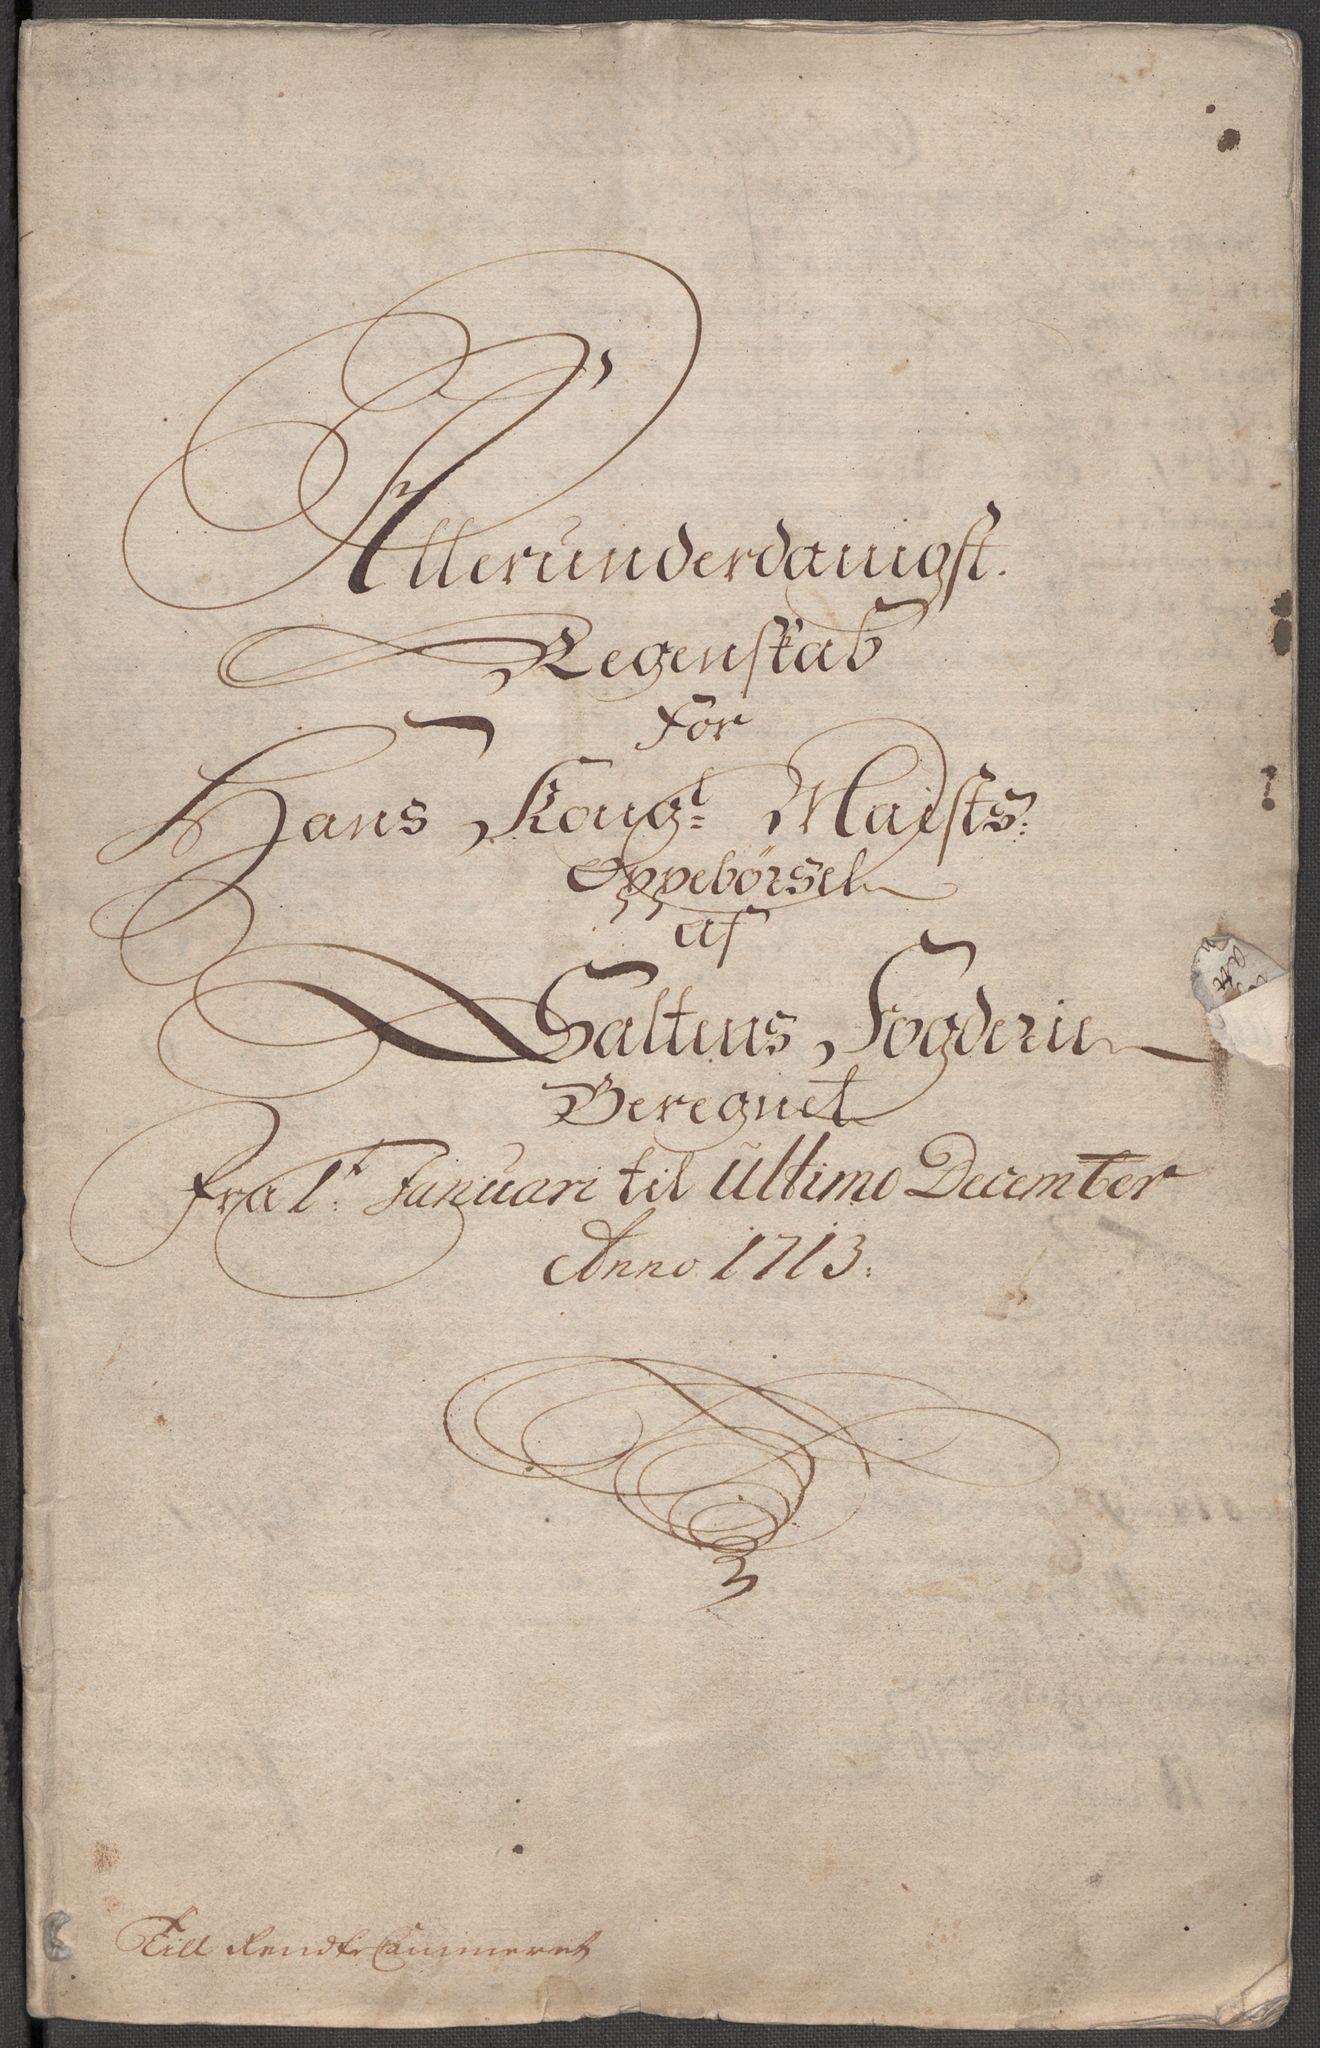 Allerunderdanigst.
Regenskab
for
Hans Kongl: Maists:
Oppebörsel
af
Saltens Fogderie
Beregnet
fra 1t: Januari til Ultimo December
Anno 1713:
Till RendteCammeret